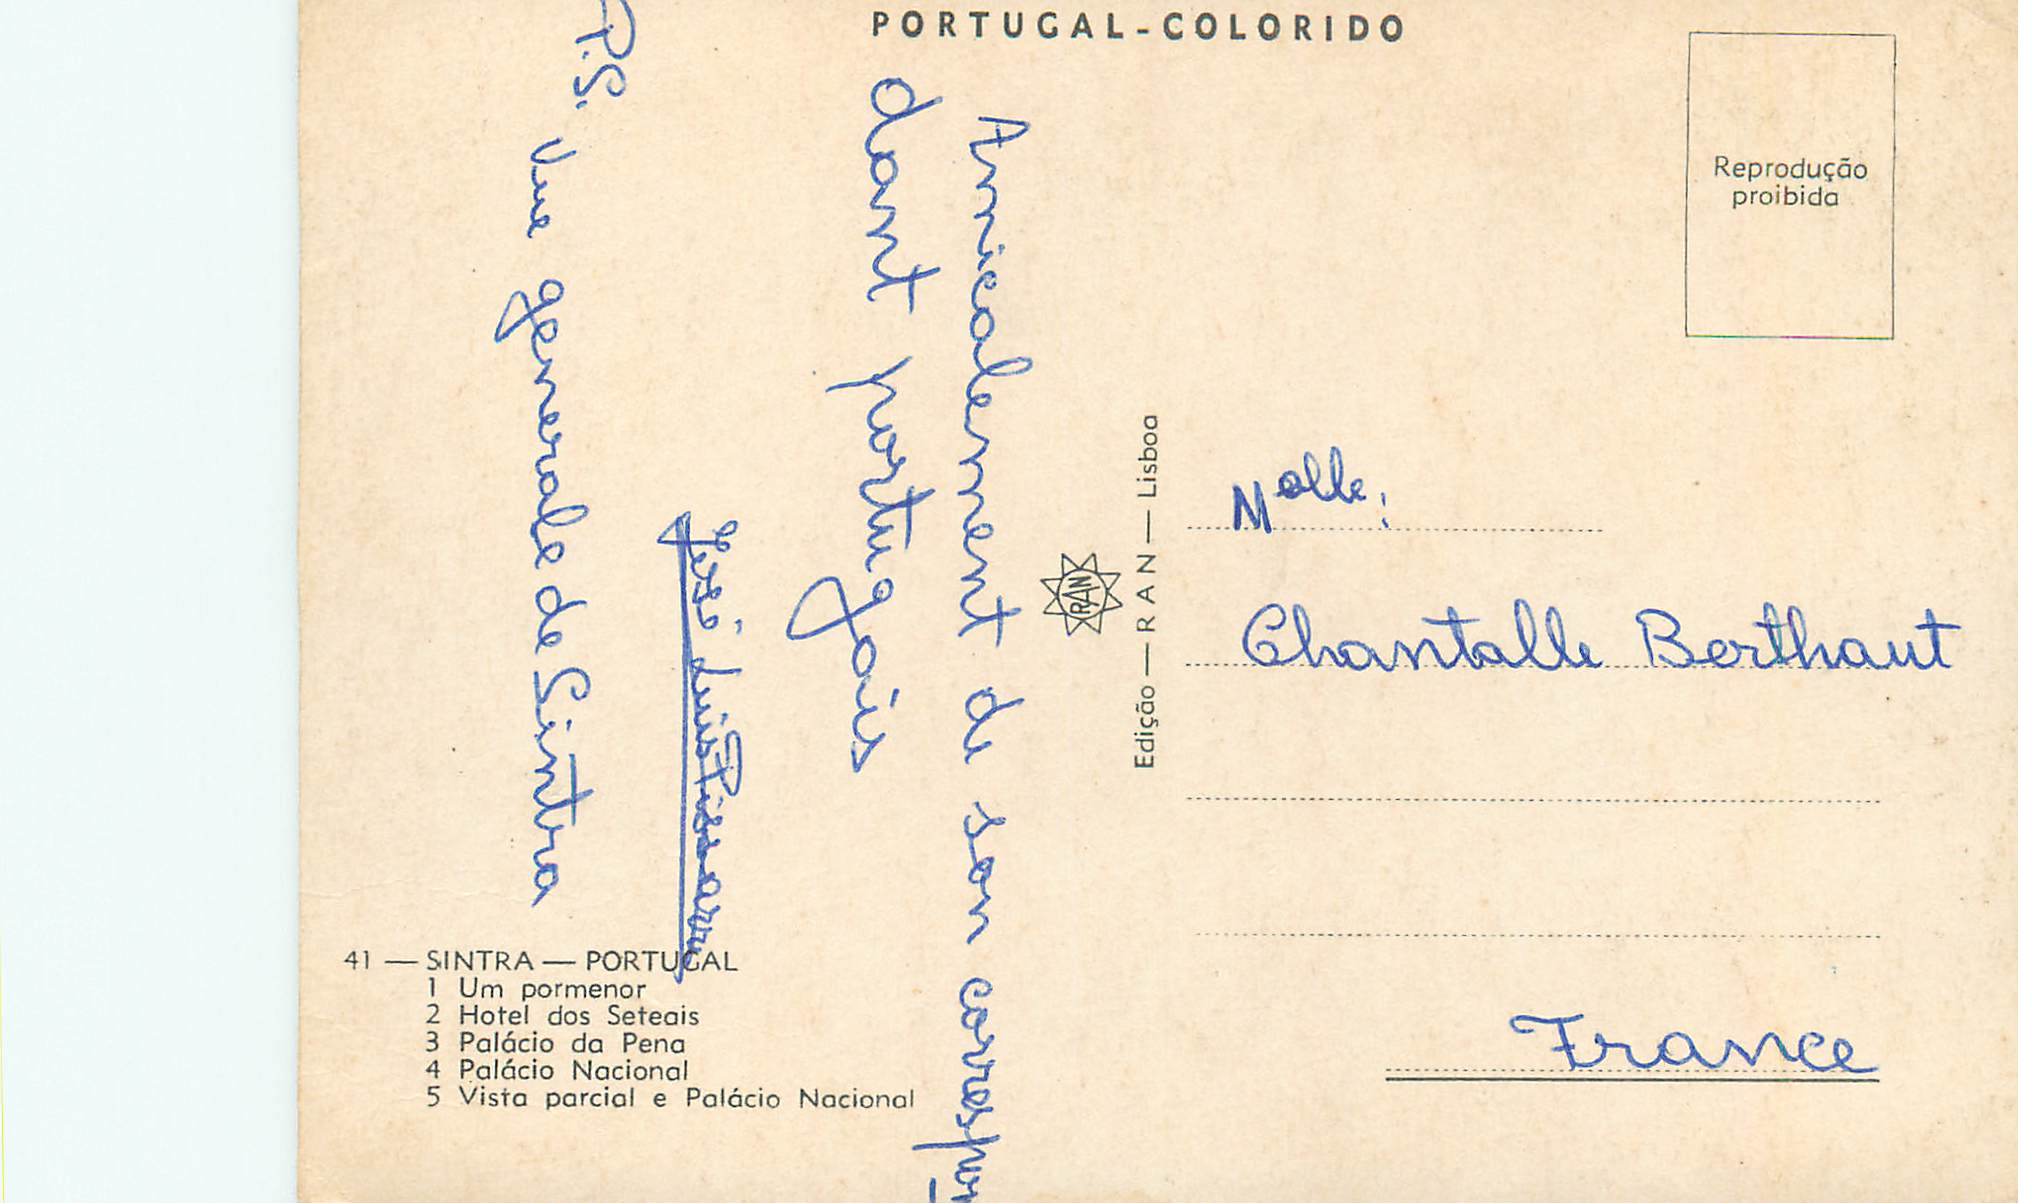 PORTUGAL-COLORIDO
Amicalement de son correspon-
dant portugais
José Luis
P.S. Vue generale de Sintra
41 — SINTRA — PORTUGAL
1 Um pormenor
2 Hotel dos Seteais
3 Palácio da Pena
4 Palácio Nacional
5 Vista parcial e Palácio Nacional
Edição — RAN — Lisboa
RAN
Reprodução
proibida
Melle.
Chantalle Berthaut
France